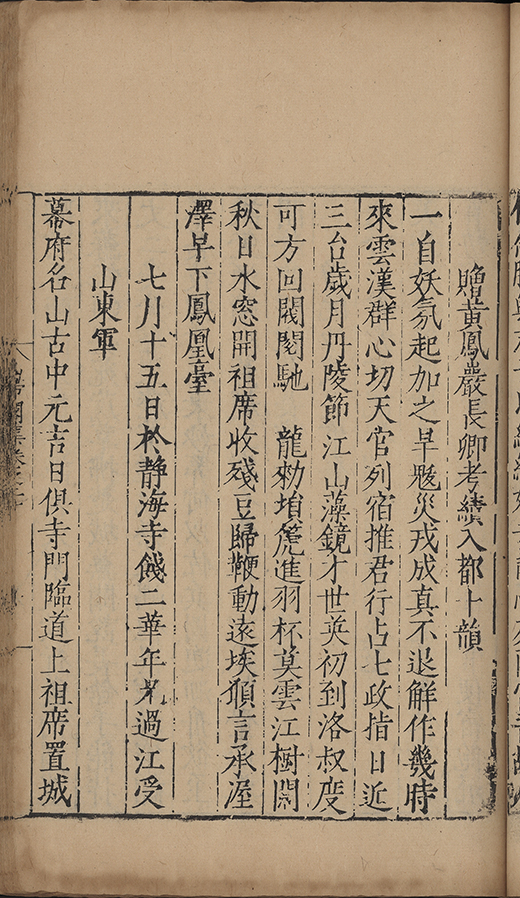 贈黃鳳巖長卿考績入都十韻
一自妖氛起加之旱魃災戎成真不退解作幾時
來雲漢群心切天官列宿推君行占七政指日近
三台歲月丹陵節江山藻鏡才世英初到洛叔度
可方回閶闔馳　龍勑堦篪進羽杯莫雲江樹闊
秋日水窓開祖席收殘豆歸鞭動遠埃願言承渥
澤早下鳳凰臺
七月十五日於靜海寺餞二華年兄過江受
山東軍
幕府名山古中元吉日俱寺門臨道上祖席置城